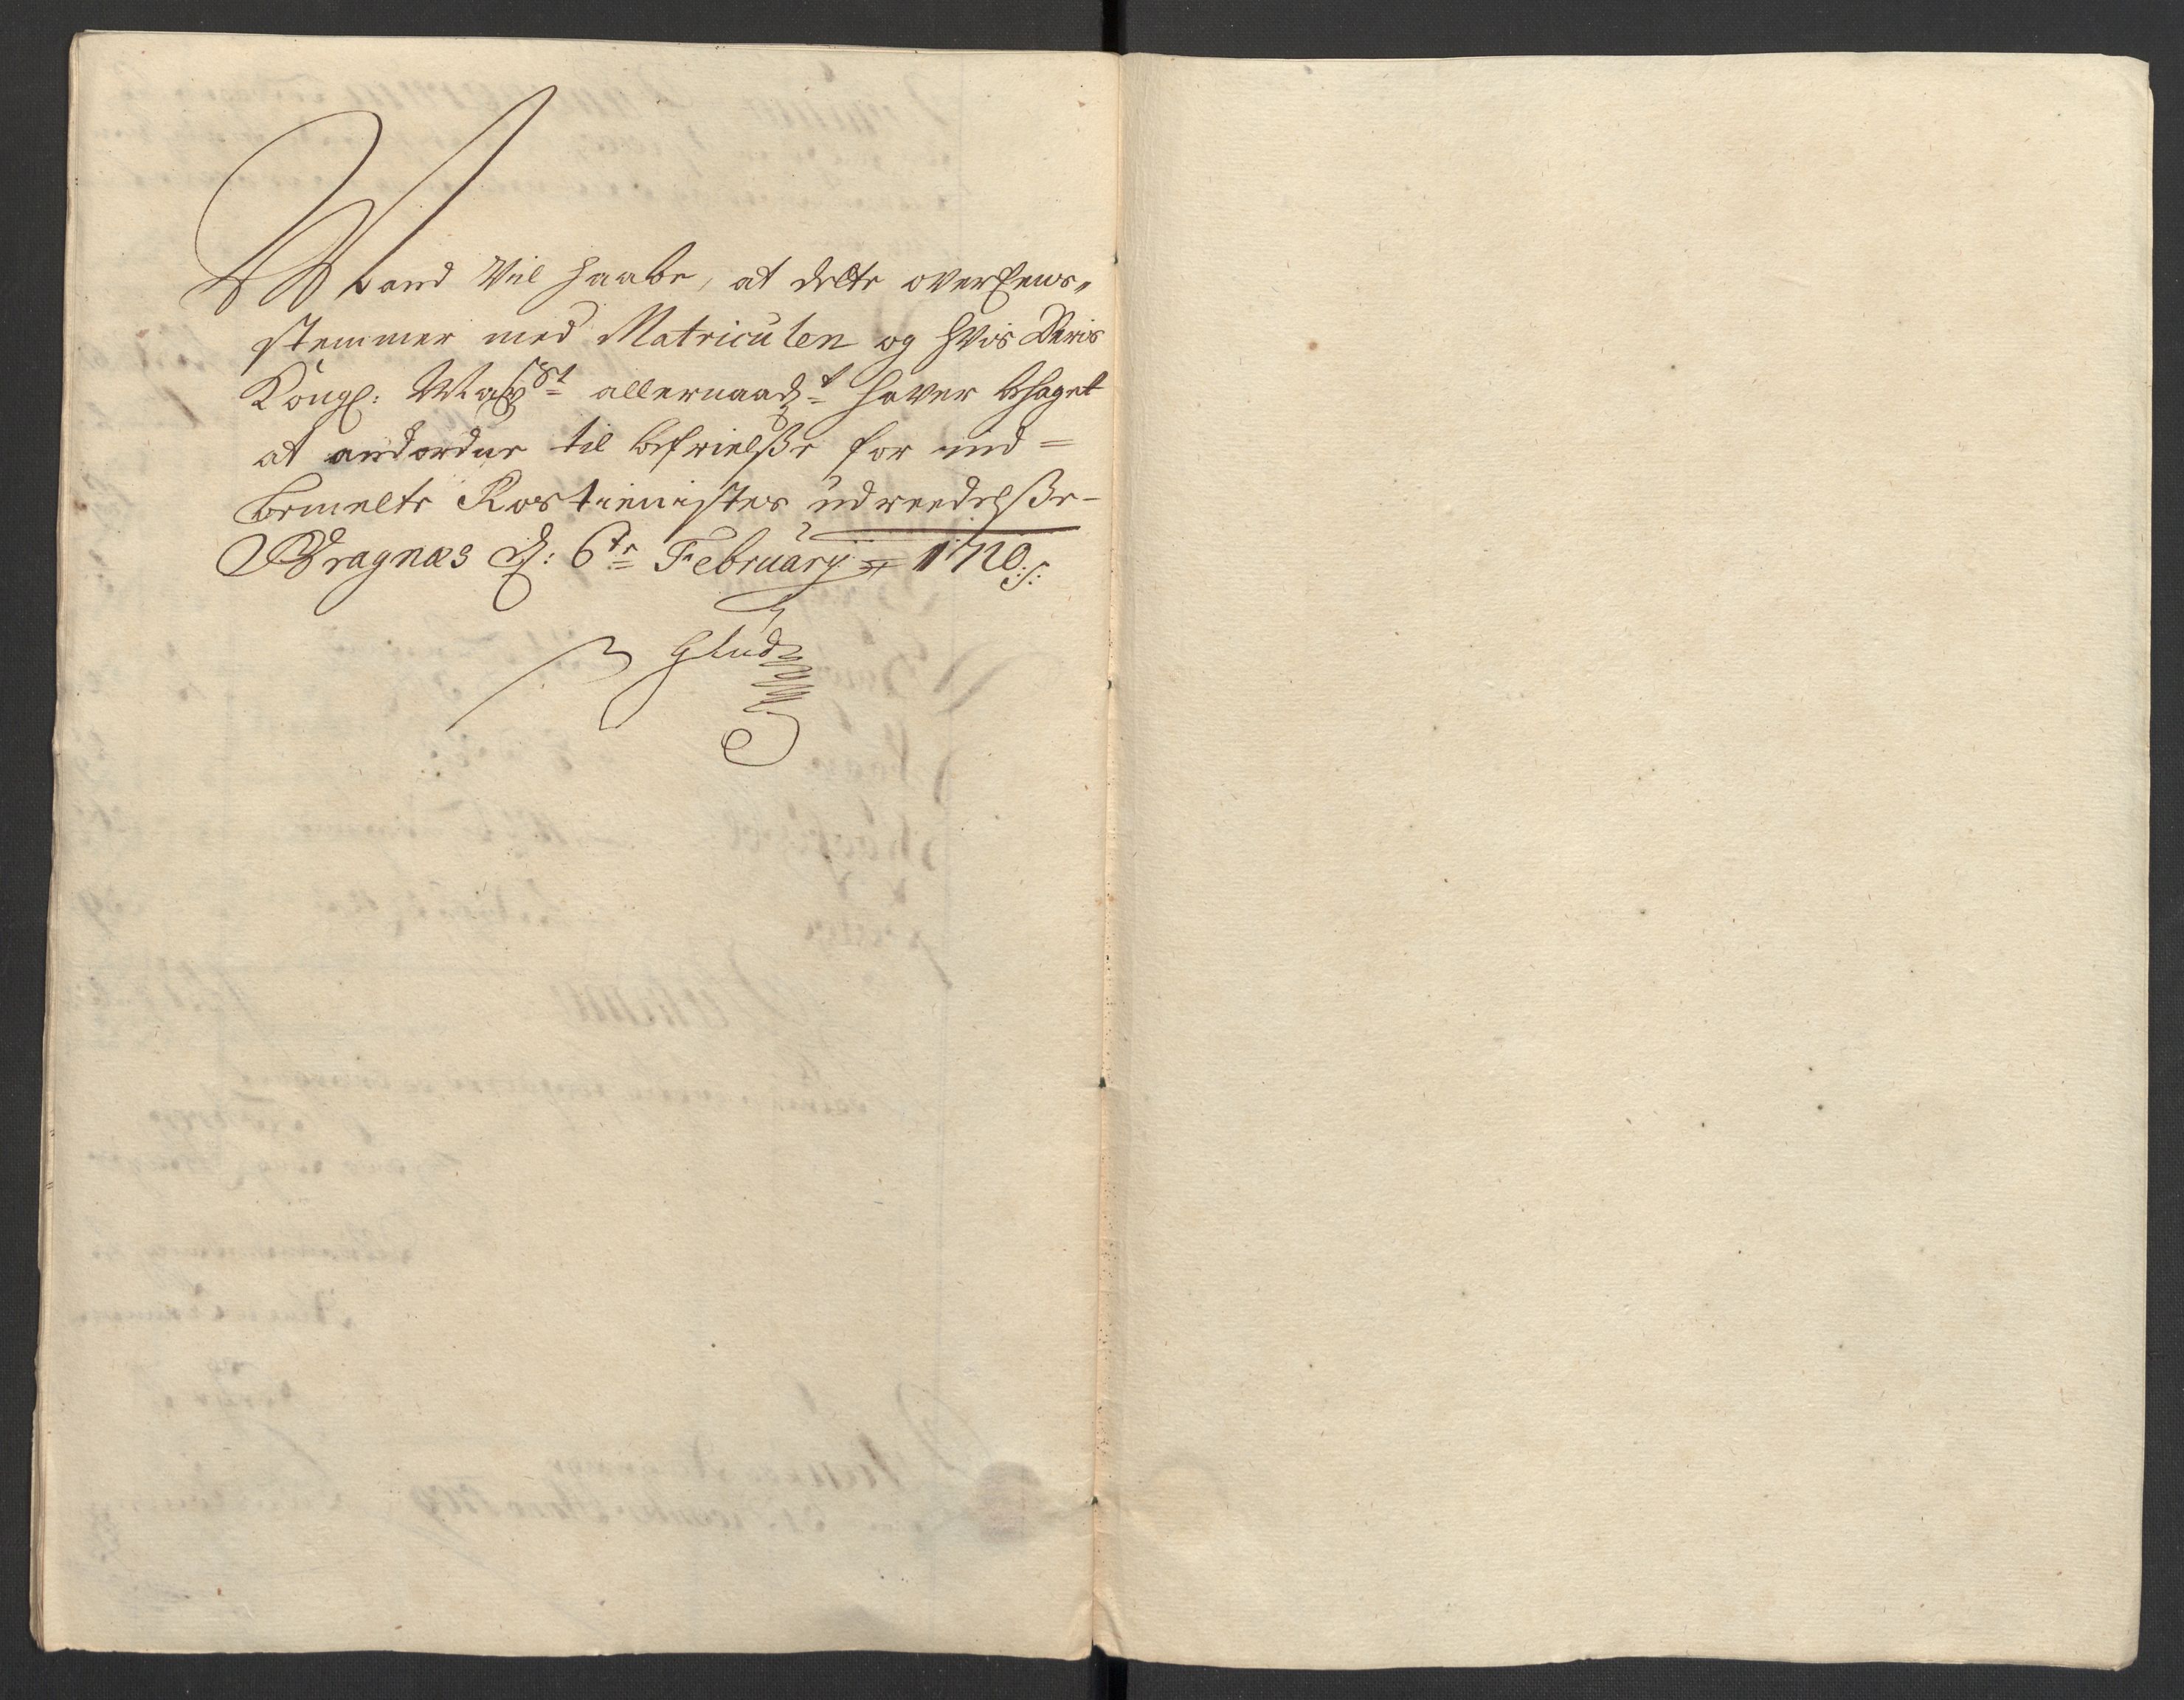 Mand Vil haabe, at dette overEens„
stemmer med Matriculen og hvis Deris
Kongl: May:st allernaadt haver bhaget
at andordne til befrielsse for ind=
bemelte Rostienistes udreedelsse-
Bragnæs d: 6te February 1710.
Glud